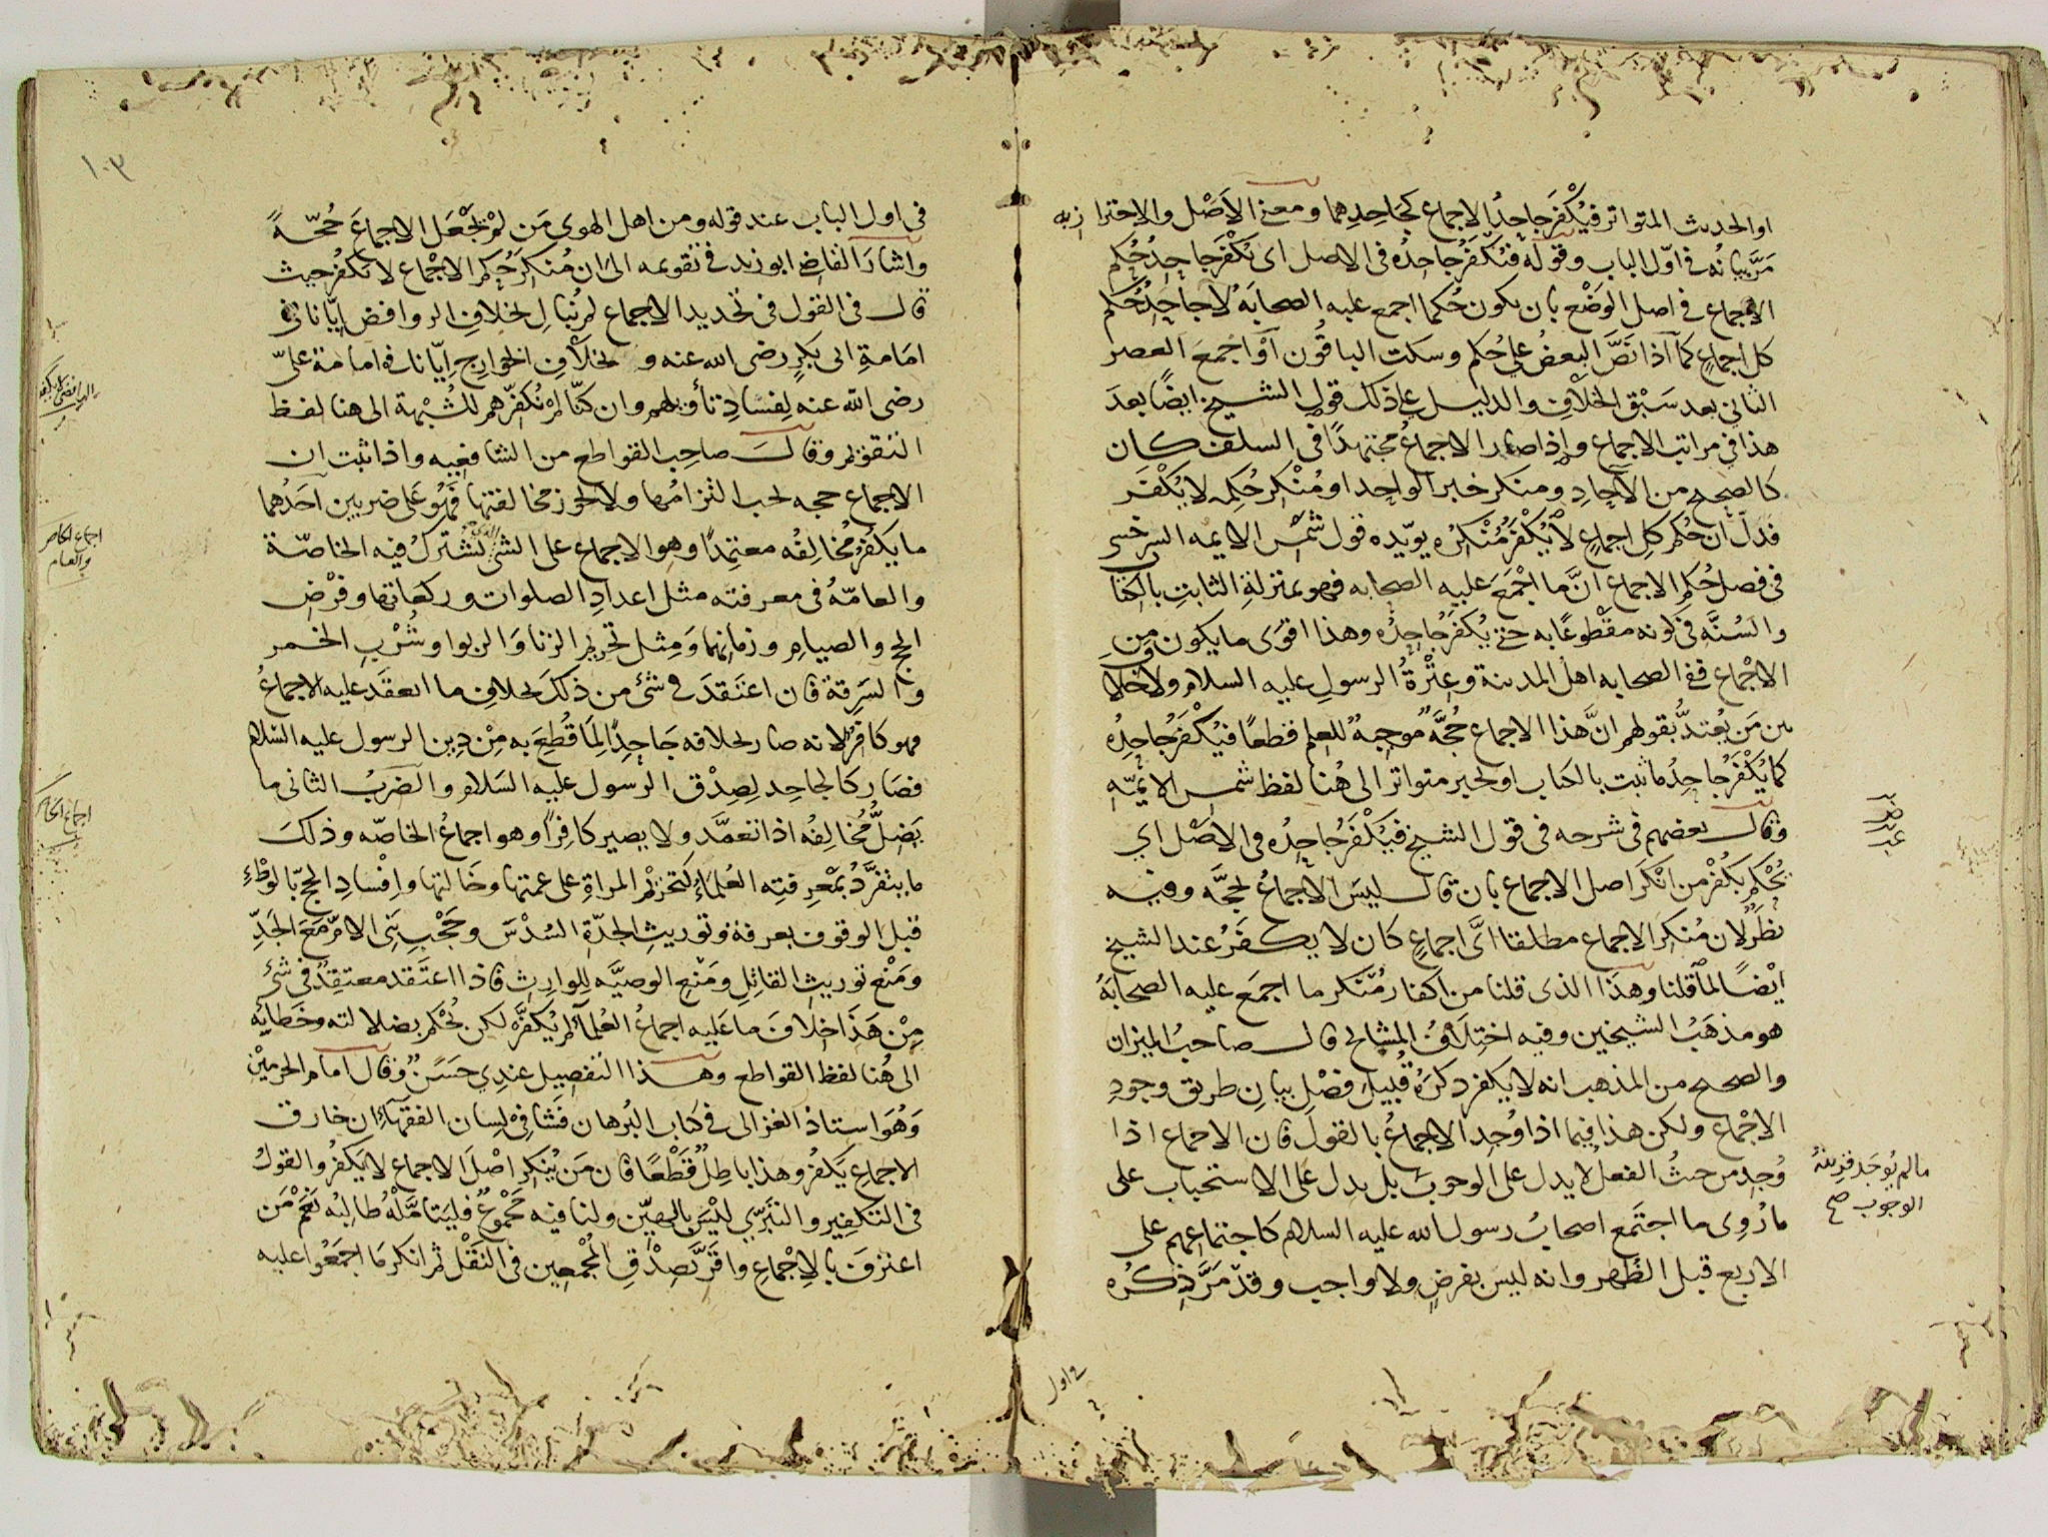 او الحديث المتواتر فيُكْفَر جاحِدُ الاجماع كجَاحِدِهما ومعنى الاَصْل والاحتراز به
مَرَّ بيانُه فى اوّل الباب وقوله فيَكفَرُ جاحِدُه فى الاصل اى يَكْفَر جاحِدُ حُكم
الاجماع فى اصل الوَضْع بان يكون حُكما اجمع عليه الصحابَهُ لا جاحِدُ حُكم
كل اجماعٍ كما اذا نَصَّ البعضُ على حُكم وسكت الباقُون اَوْ اَجْمعَ العصر
الثانى بعد سَبْق الخلافِ والدليل على ذلك قول الشيخ ايضًا بعدَ
هذا فى مراتب الاجماع واِذا صار الاجماعُ مجتهدًا فى السلف كان
كالصحيح من الآحادِ ومنكر خبر الواحِد او مُنْكر حُكمِه لا يُكفَر
فدلّ ان حُكم كلِ اجماعٍ لا يُكْفَر مُنْكِرُه يويّده قول شَمْس الايمه السرخسى
فى فصل حُكم الاجماع انَّ ما اَجْمَعَ عليه الصحابه فهو بمنزلةِ الثابتِ بالكتا
والسُنَّه فى كونه مقطُوعًا به حتى يُكفَر جاحِدُه وهذا اقوَى ما يكون مِنَ
الاجْماع ففى الصحابه اهل المدينة وعِتْرةُ الرسولِ عليه السلام ولا خلا
بين مَن يُعتدُّ بقولهم انَّ هذا الاجماع حُجَّهٌ موجِبهٌ للعلم قطعًا فيُكْفَر جاحِدُه
كما يُكْفَرُ جاحِدُ ما ثبت بالكتاب او بخبر متواتر الى هُنا لفظ شمس الايمّهِ
وقال بعضهم فى شرحه فى قول الشيخ فيُكْفَر جاحِدُه فى الاصْل اى
يُحْكم بكُفْر من انكَر اصل الاجماع بان قال ليسَ الاجماعُ بحجَّه وفيه
نظَرٌ لان مُنْكِرَ الاجماع مطلقا اىَّ اجماعٍ كان لا يكفَرُ عند الشيخ
ايْضًا لما قلنا وهذا الذى قلنا من اكفار مُنْكر ما اجمَع عليه الصحابَهُ
هو مذهَبُ الشيخين وفيه اختِلافُ المشايخ قال صاحبُ الميزان
والصحيح من المذهب انه لا يكفر ذكرَهُ قُبيلَ فَصْلِ بيانِ طريق وجودِ
الاجْماع ولكن هذا فيما اذا وُجِد الاجماعُ بالقول فان الاجماع اذا
وُجِد من حيثُ الفعل لا يدل على الوجوب بل يدل على الاستحباب على
ما رُوِى ما اجتَمع اصحابُ رسول الله عليه السلام كاجتماعهم على
الاربع قبل الظهر وانه ليس بفرضٍ ولا واجب وقد مَرَّ ذِكرُه
ما لم يوجَد قرينهُ
الوجوب صح
فى اول
١٠٣
فى اول الباب عند قوله ومن اهل الهوى مَن لم يَجْعَل الاجماعَ حُجّهً
واشارَ القاضى ابو زيد فى تقويمه الى ان مُنكرَ حُكم الاجْماع لا يكفُر حيث
قال فى القول فى تحديد الاجماع لم نُبالِ بخلافِ الروافض ايّانا فى
امَامةِ ابى بَكرٍ رضى الله عنه و بخلافِ الخوارج اِيّانا فى امامة علىّ
رضى الله عنه لِفسَادِ تأويلهم وان كنّا لم نُكفّرهم للشُبْهة الى هنا لفظ
التقويم وقال صاحب القواطع من الشافعيه واذا ثبت ان
الاجماع حجه يجب التزامُها ولا يجوز مخالفتها فَهُو على ضربين اَحَدُهما
ما يكفُر مُخالِفُه معتمِدًا وهو الاجماع على الشئ الذى تشترك فيه الخاصّة
والعامّهُ فى معرفته مثل اعدادِ الصلوات وركعاتها وفرْض
الحج والصيامِ وزمانهما وَمِثل تحريم الزنا وَالربوا وشُرْبِ الخمر
والسَرِقة فان اعتَقدَ فى شئ من ذلكَ بخلافِ ما انعقَد عليه الاجماعُ
فهو كافرٌ لانه صار بخلافه جَاحِدًا لِمَا قُطِعَ به مِنْ دِين الرسول عليه السلام
فصَار كالجاحِد لِصِدْق الرسول عليه السَلام والضَربُ الثانى ما
يَضلُّ مُخالِفُه اذا تعمَّد ولا يصير كافِرًا وهو اجماعُ الخاصّه وذلكَ
ما ينفرّدُ بمَعْرِفتِه العُلمَاءُ كتحْرِيْم المراةِ على عمتها وخَالتها واِفْسادِ الحجّ بالوطْءِ
قبل الوقوف بعرفة وتوريثِ الجدّةِ السُدْسَ وحَجْبِ بَنِى الامّ معَ الجَدِّ
ومَنْعِ توريثِ القاتِلِ ومَنْعِ الوصيَّه لِلوارِثِ فاذا اعتَقد معتقِدٌ فى شئ
مِنْ هَذَا خِلافَ ما عَليه اجماعُ العُلماءِ لم يُكفَّرْ لكن يُحْكم بضلالته وخَطايه
الى هُنا لفظ القواطع وهذا التفصيل عندِى حسَنٌ وقال امام الحرمَيْن
وَهُوَ استاذ الغزالى فى كتاب البُرهان فَشا فى لِسان الفقهاء ان خارق
الاجماعِ يَكفُر وهذا باطِلٌ قَطْعًا فان مَن يُنكِر اصْلَ الاجماع لا يَكفُر والقولُ
فى التكفِيرِ والتَبَرِّى ليْسَ بالهيّن ولنا فيه مَجْموعٌ فليتَامَّلْهُ طالِبُه نَعَمْ مَن
اعترَفَ بالاِجْماعِ واقَرَّ بَصِدْقِ المُجْمعِين فى النَقْل ثم انكر مَا اجمَعُوا عليه